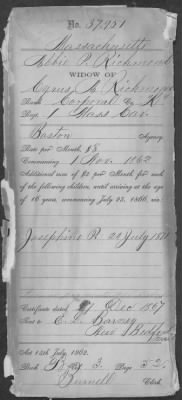 No. 37951
Massachusetts
Abbie P. Richmond
WIDOW OF
Cyrus A. Richmond
Rank Corporal Co. K
Regt. 1 Mass Cav
Boston Agency.
Rate per Month, $8
Commencing 1 Nov. 1862
Additional sum of $2 per month for each
of the following children, until arriving at the age
of 16 years, commencing July 25, 1866, viz:
Josephine R. July
Certificate dated Dec 1867
Sent to
New Bedford
Mass
Act 14th July, 1862.
Book Page 52
Clerk.